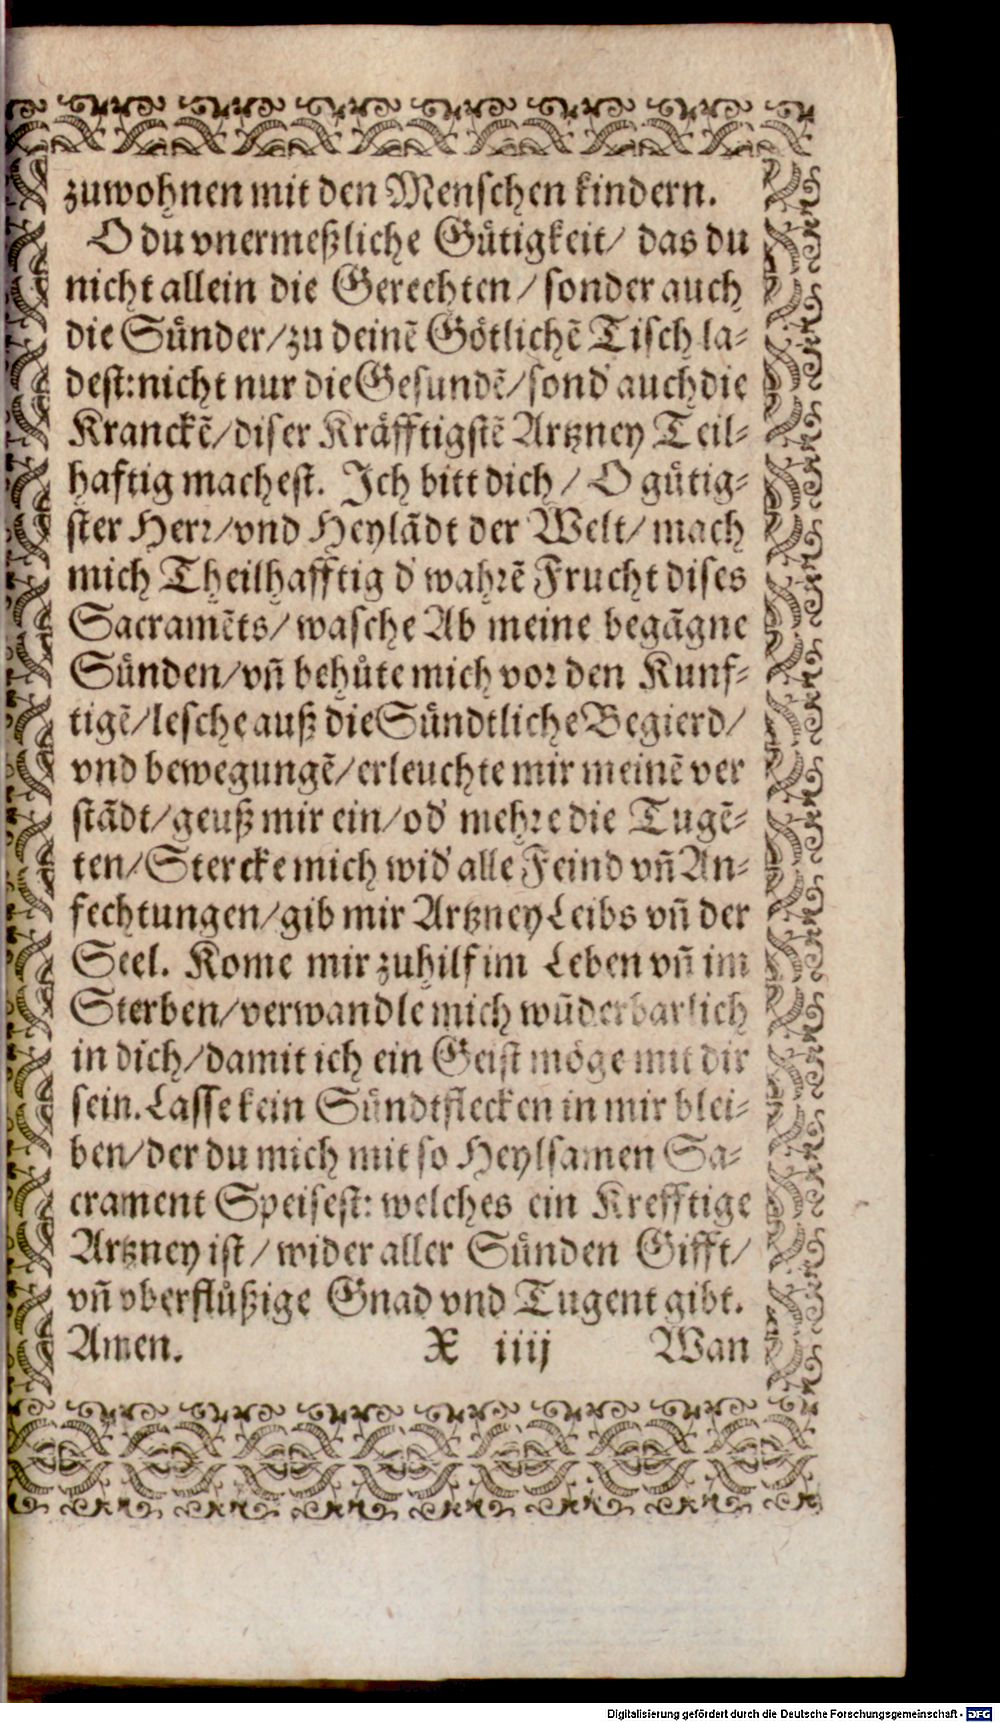 zuwohnen mit den Menschen kindern.
O du vnermeßliche Gütigkeit/ das du
nicht allein die Gerechten/ sonder auch
die Sünder/zu deinẽ Götlichẽ Tisch la-
dest:nicht nur die Gesundẽ/sond' auch die
Kranckẽ/diser Kräfftigstẽ Artzney Teil-
haftig machest. Ich bitt dich/ O gütig-
ster Herr/vnd Heylãdt der Welt/ mach
mich Theilhafftig d' wahrẽ Frucht dises
Sacramẽts/ wasche Ab meine begãgne
Sünden/vñ behůte mich vor den Kunf-
tigẽ/lesche auß die Sündtliche Begierd/
vnd bewegungẽ/erleuchte mir meinẽ ver
stãdt/geuß mir ein/od' mehre die Tugẽ-
ten/Stercke mich wid' alle Feind vñ An-
fechtungen/gib mir Artzney Leibs vñ der
Seel. Kome mir zuhilf im Leben vñ im
Sterben/verwandle mich wũderbarlich
in dich/damit ich ein Geist möge mit dir
sein. Lasse kein Sündtflecken in mir blei-
ben/der du mich mit so Heylsamen Sa-
crament Speisest: welches ein Krefftige
Artzney ist/ wider aller Sünden Gifft/
vñ vberflůßige Gnad vnd Tugent gibt.
Amen. X iiij Wan
Digitalisierung gefördert durch die Deutsche Forschungsgemeinschaft - DFG